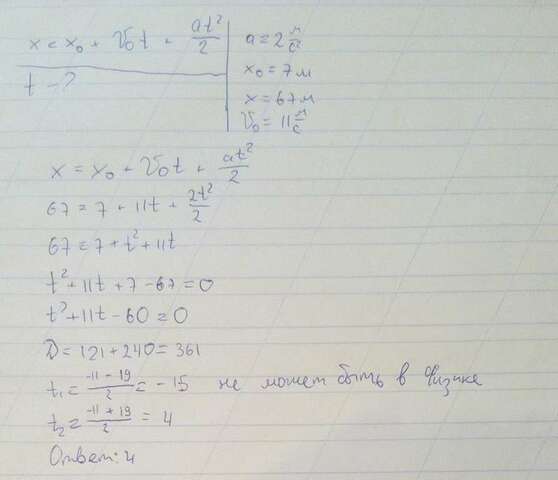 x = x₀ + V₀t + at²/2
t - ?
a = 2 м/с²
x₀ = 7 м
x = 67 м
V₀ = 11 м/с
x = x₀ + V₀t + at²/2
67 = 7 + 11t + 2t²/2
67 = 7 + t² + 11t
t² + 11t + 7 - 67 = 0
t² + 11t - 60 = 0
D = 121 + 240 = 361
t₁ = (-11 - 19)/2 = -15 не может быть в физике
t₂ = (-11 + 19)/2 = 4
Ответ: 4